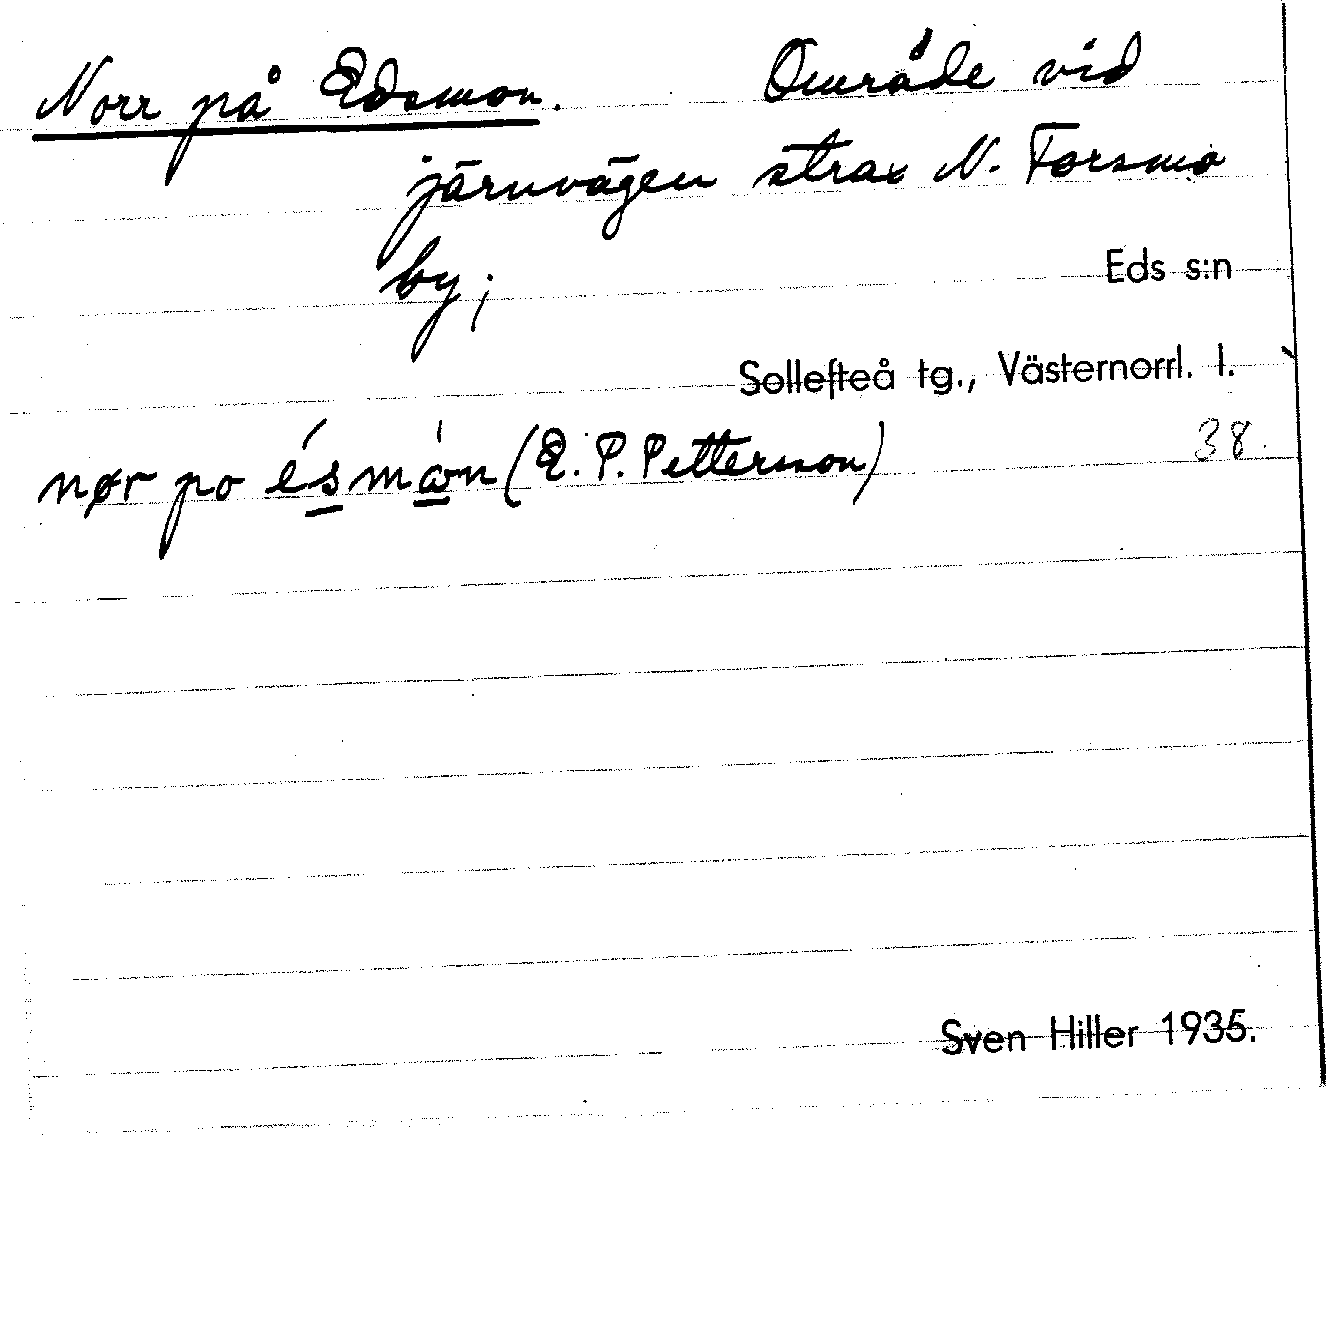 Norr på Edsmon. Område vid
järnvägen strax N. Forsmo
by;
Eds s:n
Sollefteå tg., Västernorrl. l.
nør po ésmón (E. P. Pettersson)
38.
Sven Hiller 1935.